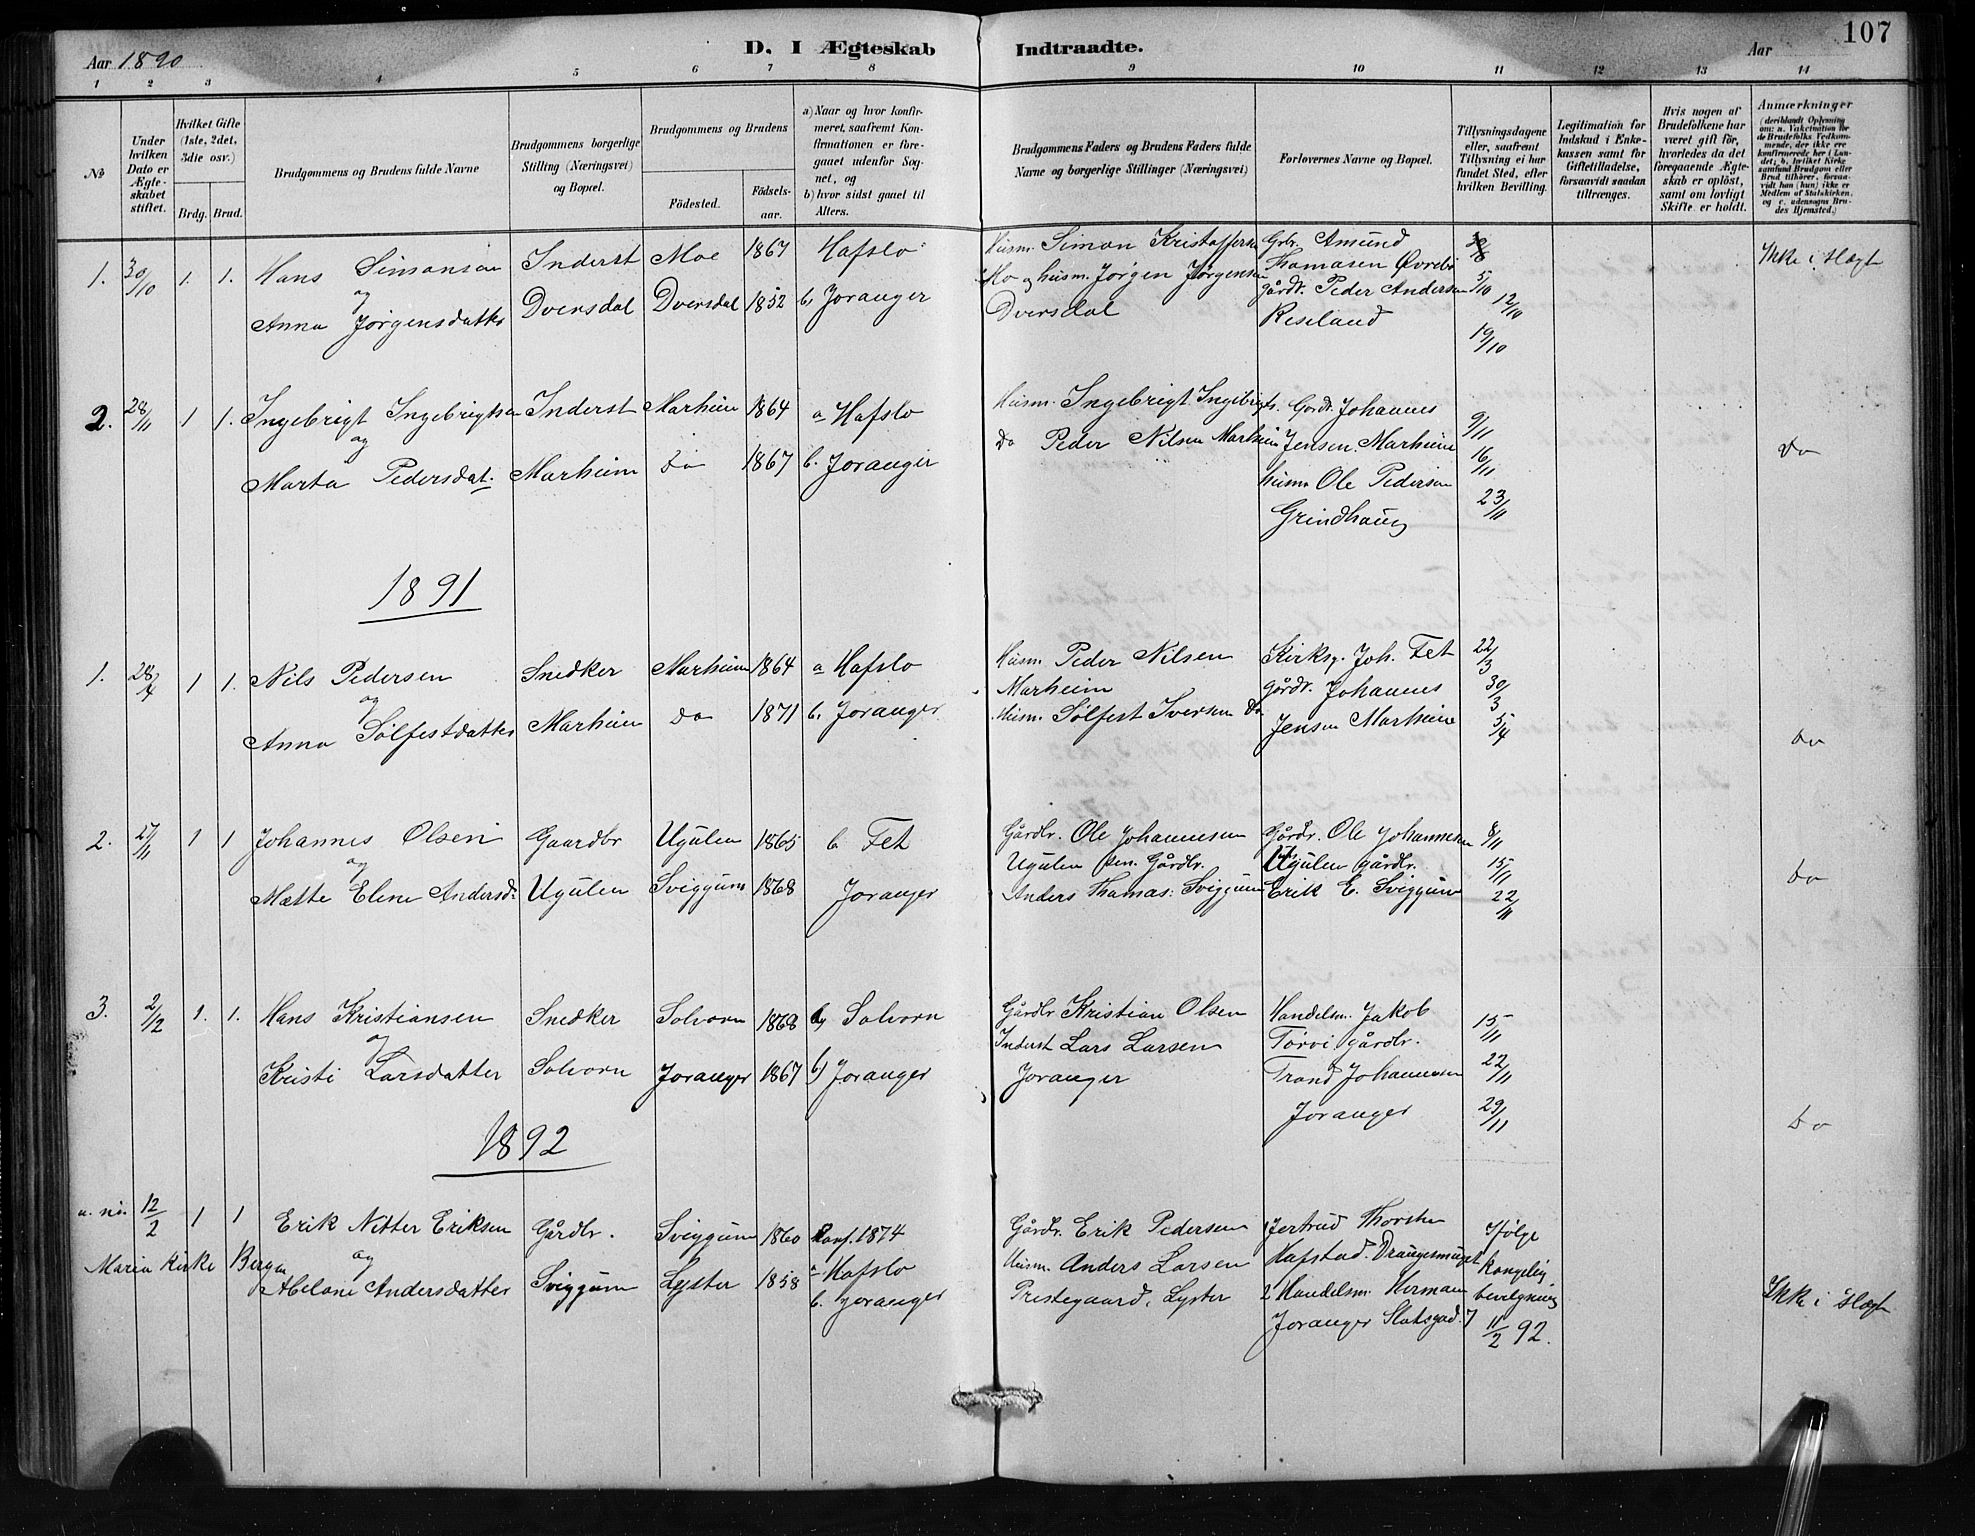 107
Aar 1890
D. I Ægteskab Indtraadte.
Aar
1 2 3 4 5 6 7 8 9 10 11 12 13 14
No
Under hvilken Dato er Ægteskabet stiftet.
Hvilket Gifte (1ste, 2det, 3die osv.)
Brdg. Brud.
Brudgommens og Brudens fulde Navne
Brudgommens borgerlige Stilling (Næringsvei) og Bopæl.
Brudgommens og Brudens
Födested. Födselsaar.
a) Naar og hvor konfirmeret, saafremt Konfirmationen er foregaaet udenfor Sognet, og
b) hvor sidst gaaet til Alters.
Brudgommens Faders og Brudens Faders fulde Navne og borgerlige Stillinger (Næringsvei)
Forlovernes Navne og Bopæl.
Tillysningsdagene eller, saafremt Tillysning ei har fundet Sted, efter hvilken Bevilling.
Legitimation for Indskud i Enkekassen samt for Giftetilladelse, forsaavidt saadan tiltrænges.
Hvis nogen af Brudefolkene har været gift før, hvorledes da det foregaaende Ægteskab er oplöst, samt om lovligt Skifte er holdt.
Anmærkninger
1. 30/10 1. 1. Hans Simonsen Inderst Moe 1867 Hafslo Husm. Simon Kristoffersen Grbr. Amund Ikke i Slægt
og Mo og husm. Jørgen Jørgensen Thomasen Øvrebø 5/10
Anna Jørgensdatter Dversdal Dversdal 1852 b. Joranger Dversdal gårdbr. Peder Andersen 12/10
Reseland 19/10
2. 28/11 1 1. Ingebrigt Ingebrigtsen Inderst Marheim 1864 a Hafslo Husm. Ingebrigt Ingebrigts. Gårdbr. Johannes 9/11
og Do Peder Nilsen Marheim Jensen Marheim 16/11 Do
Marta Pedersdat. Marheim do 1867 b. Joranger husm Ole Pedersen 23/11
Grindhaug
1891
1. 28/4 1 1. Nils Pedersen Snedker Marheim 1864 a Hafslo Husm. Peder Nilsen Kirks. Joh. Fet 22/3
og Marheim gårdbr. Johannes 30/3
Anna Sølfestdatter Marheim do 1871 b. Joranger Husm. Sølfest Iversen Do Jensen Marheim 5/4 Do
2. 27/11 1 1 Johannes Olsen Gaardbr Ugulen 1865 b. Fet Gårdbr. Ole Johannesen Gårdbr. Ole Johannesen 8/11
og Ugulen sen. Gårdbr. Ugulen gårdbr. 15/11 Do
Mætte Elene Andersd. Ugulen Sviggum 1868 Joranger Anders Thomas: Sviggum Erik E. Sviggum 22/11
3. 2/12 1. 1. Hans Kristiansen Snedker Solvorn 1868 b) Solvorn Gårdbr Kristian Olsen Handelsm. Jakob 15/11
og Inderst Lars Larsen Torvi gårdbr. 22/11
Kristi Larsdatter Solvorn Joranger 1867 b) Joranger Joranger Trond Johannesen 29/11
Joranger Do
1892
12/2 1 1 Erik Nitter Eriksen Gårdbr. Sviggum 1860 Konf. 1874 Gårdbr. Erik Pedersen 1 Jertrud Thorsten Ifølge
Maria Kirke Bergen og a Hafslo Husm. Anders Larsen Hafstad. kongelig
Helene Andersdatter Sviggum Lyster 1858 b. Joranger Prestegaard, Lyster 2 Handelsm. Herman bevilgning Ikke i Slægt
Joranger 11/2 92.